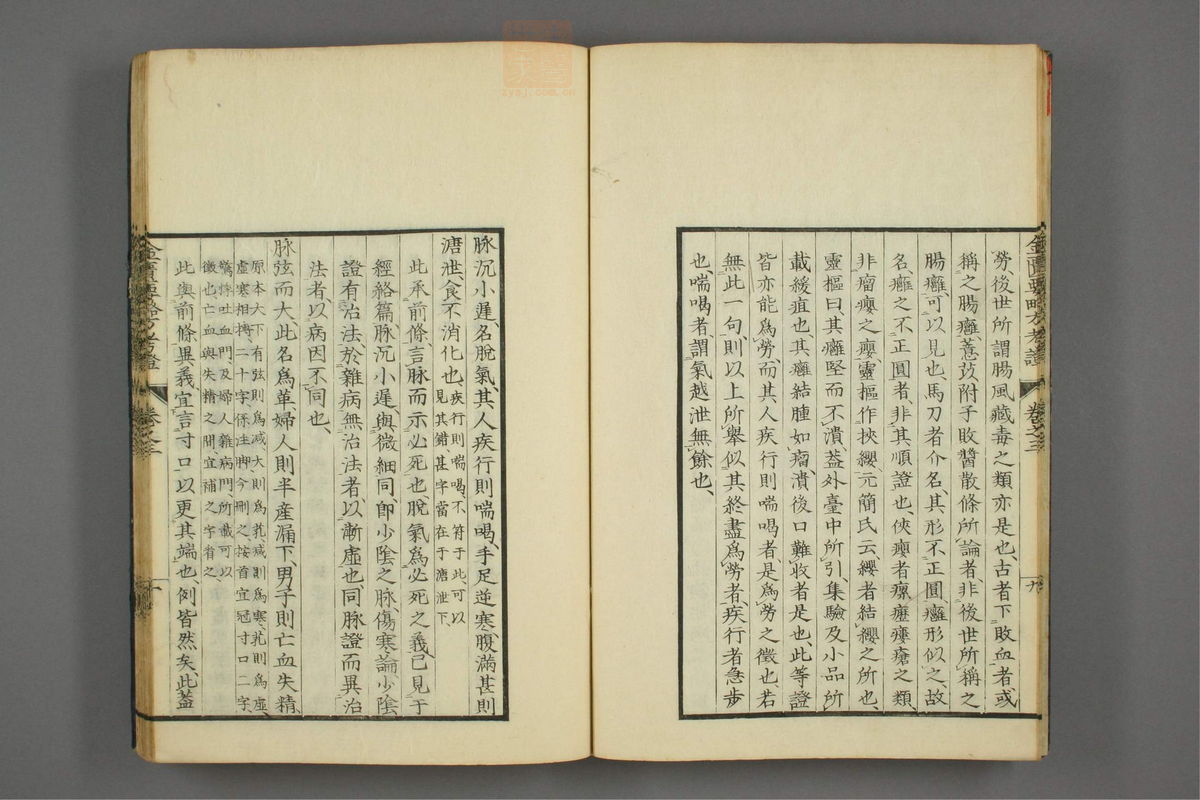 勞、後世所謂腸風藏毒之類亦是也、古者下敗血者或
稱之腸癰、薏苡附子敗醬散條所論者、非後世所稱之
腸癰、可以見也、馬刀者介名、其形不正圓、癰形似之、故
名、癰之不正圓者、非其順證也、俠癭者瘰癧瘻瘡之類、
非瘤癭之癭、靈樞作挾纓、元簡氏云、纓者結纓之所也、
靈樞曰、其癰堅而不潰、蓋外臺中所引、集驗及小品所
載緩疽也、其癰結腫如瘤、潰後口難收者是也、此等證
皆亦能為勞、而其人疾行則喘喝者、是為勞之徵也、若
無此一句、則以上所舉、似其終盡為勞者、疾行者急步
也、喘喝者、謂氣越泄無餘也、
脉沉小遲、名脫氣、其人疾行則喘喝、手足逆寒、腹滿、甚則
溏泄、食不消化也、
疾行則喘喝、不符于此、可以
見其錯、甚字當在于溏泄下、
此承前條、言脉而示必死也、脫氣為必死之義、已見于
經絡篇、脉沉小遲、與微細同、即少陰之脉、傷寒論少陰
證有治法、於雜病無治法者、以漸虛也、同脉證而異治
法者、以病因不同也、
脉弦而大、此名為革、婦人則半産漏下、男子則亡血失精
原本大下有弦則為减大則為芤、减則為寒、芤則為虛、
虛寒相搏、二十字係注脚今刪之、按首宜冠寸口二字、
驚悸吐血門、及婦人雜病門、所載可以
徵也、亡血與失精之間、宜補之字看之、
此與前條異義、宜言寸口以更其端也、例皆然矣、此蓋
金匱要略方考證
卷之三
九